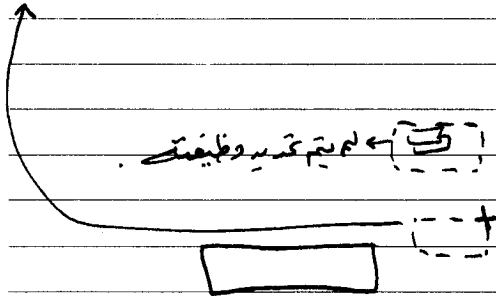 لم يتم تحديد وظيفته .